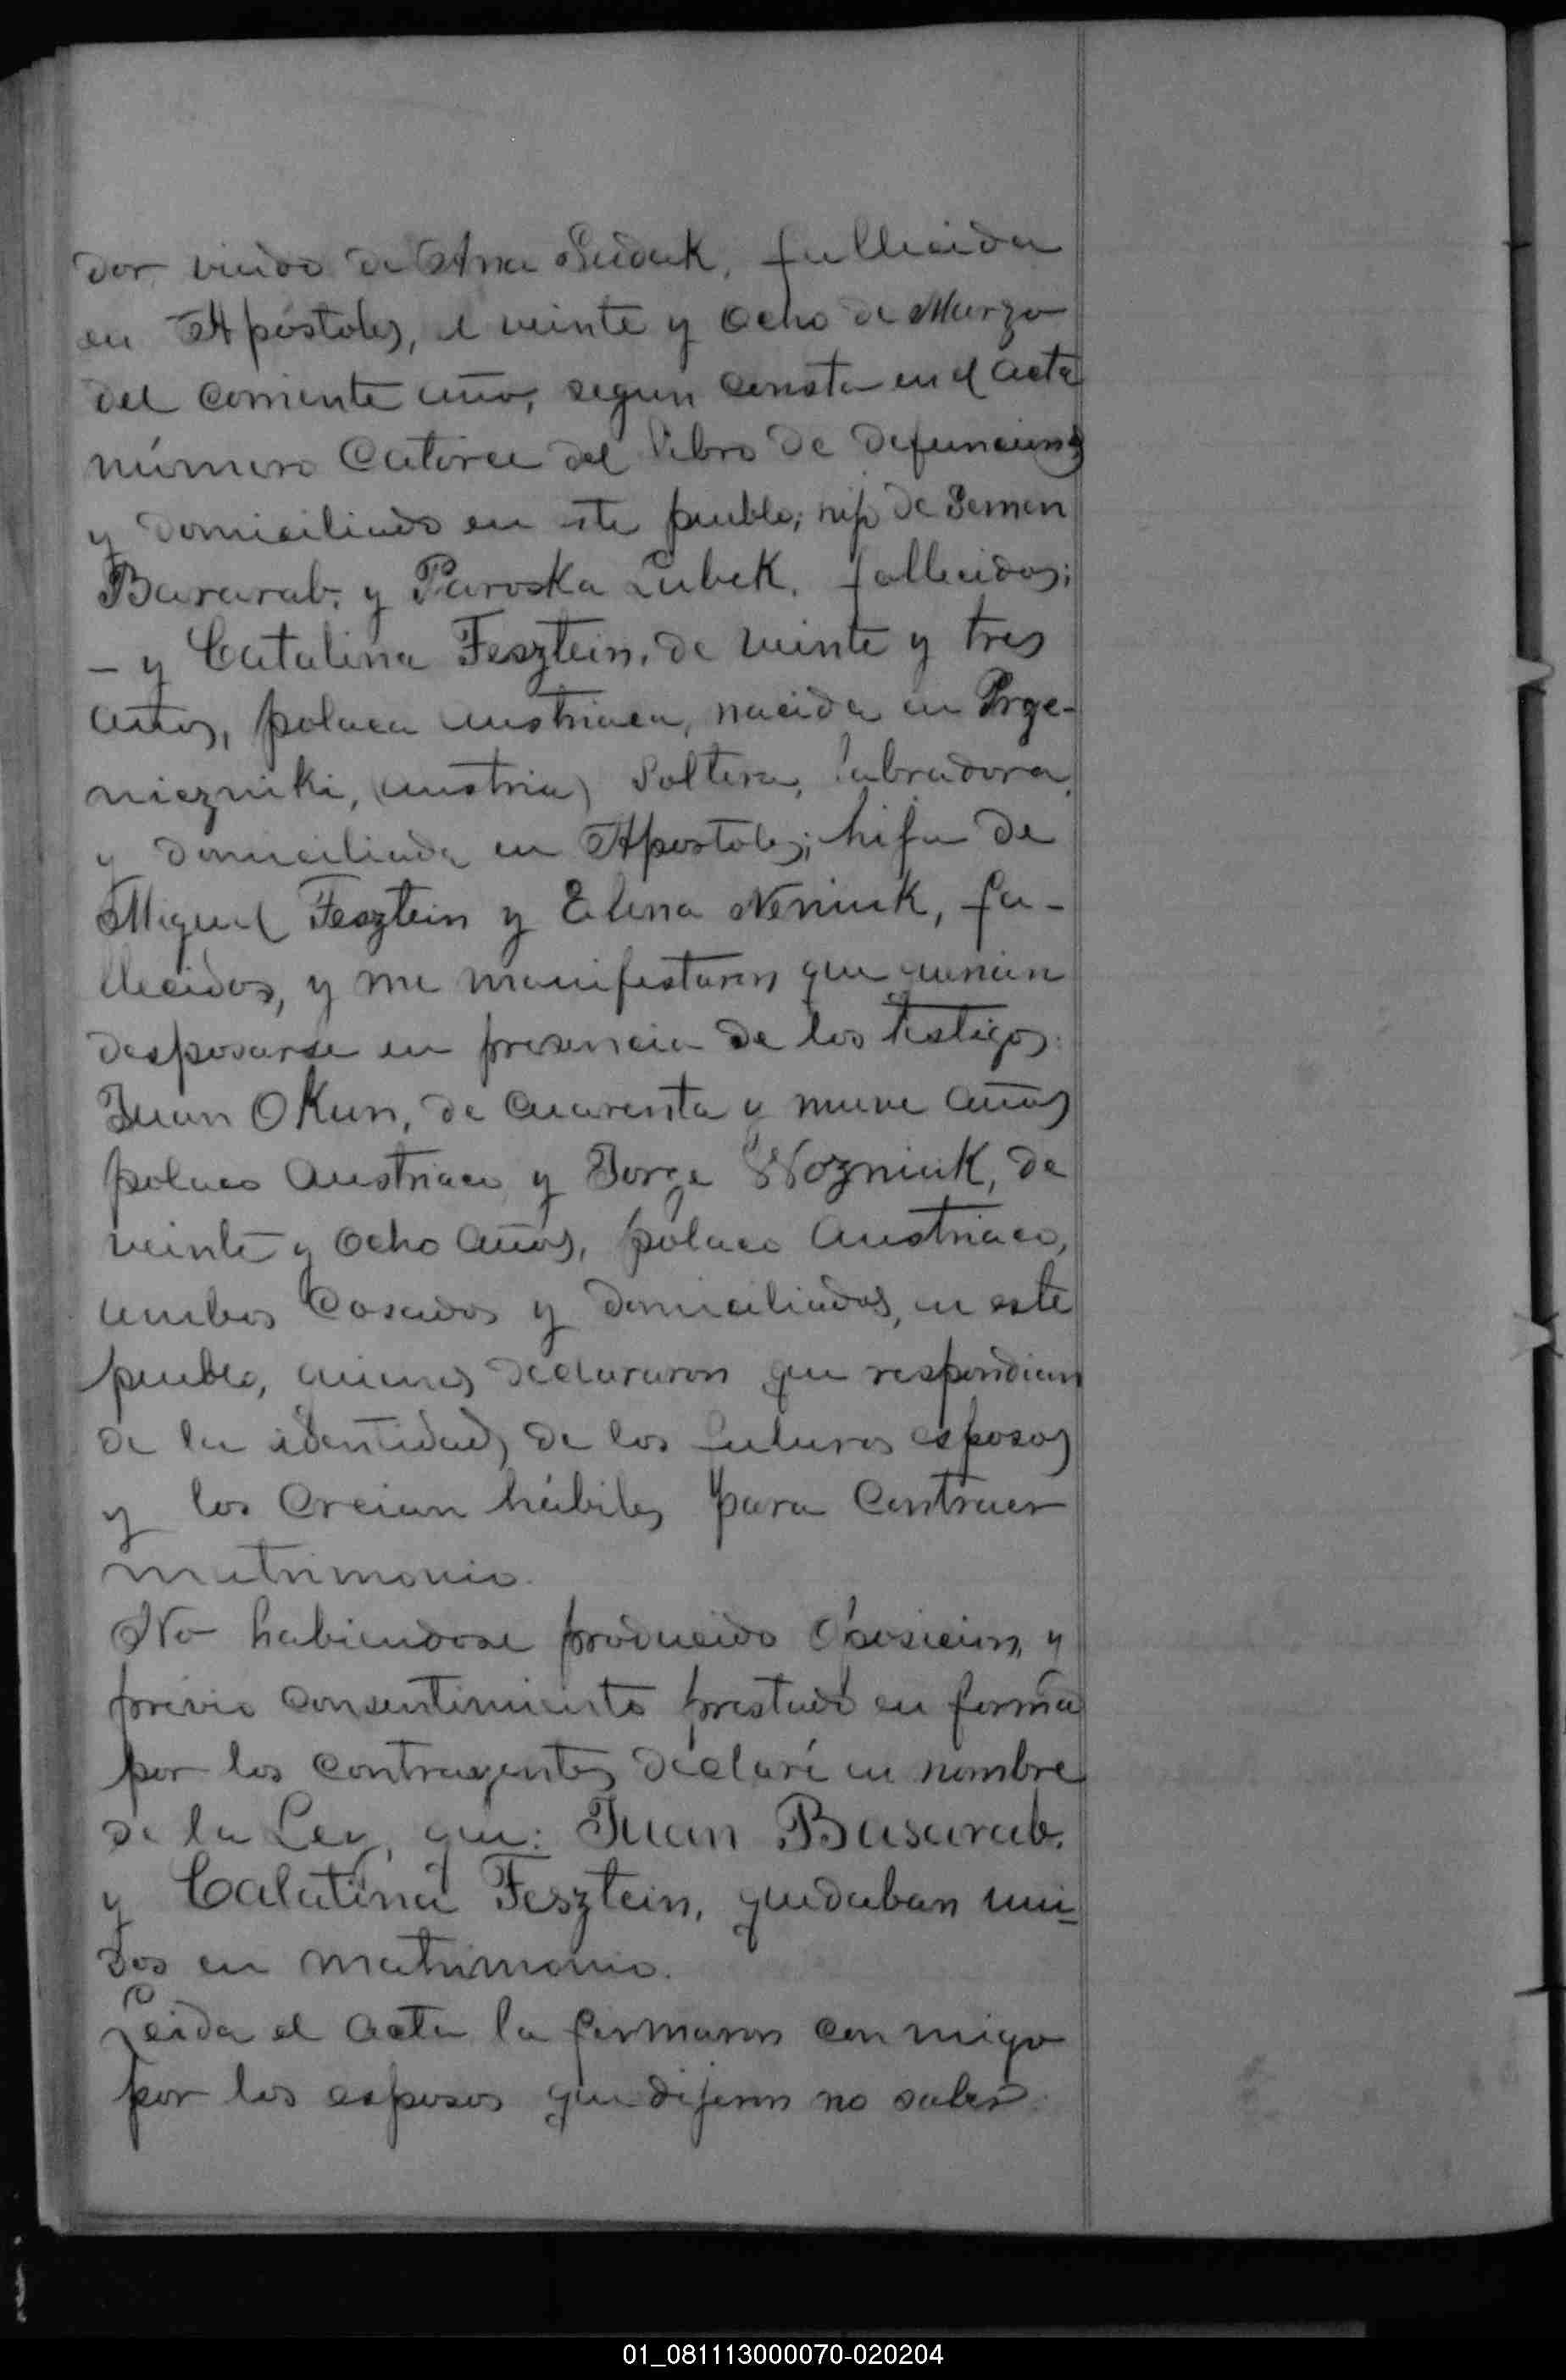 dor, viudo de Ana Siduk, fallecida
en Apóstoles, el veinte y ocho de Marzo
del corriente año, segun consta en el acta
número catorce del libro de defunciones
y domiciliado en este pueblo; hijo de Semen
Bararab, y Paroska Lubek, fallecidos;
- y Catalina Fesztein, de veinte y tres
años, polaca austriaca, nacida en Prge-
niezniki, (Austria) soltera, labradora,
y domiciliada en Apostoles; hija de
Miguel Fesztein y Elena Neniuk, fa-
llecidos, y me manifestaron que querian
desposarse en presencia de los testigos:
Juan Okun, de cuarenta y nueve años
polaco austriaco y Jorge Wozniuk, de
veinte y ocho años, polaco austriaco,
ambos casados y domiciliados, en este
pueblo, quienes declararon que respondian
de la identidad, de los futuros esposos
y los creian hábiles para contraer
matrimonio.
No habiendose producido oposicion, y
prévio consentimiento prestado en forma
por los contrayentes declaré en nombre
de la Ley, que: Juan Basarab.
y Catatina Fesztein, quedaban uni-
dos en matrimonio.
Leida el acta la firmaron con migo
por los esposos que dijeron no saber
01_081113000070-020204